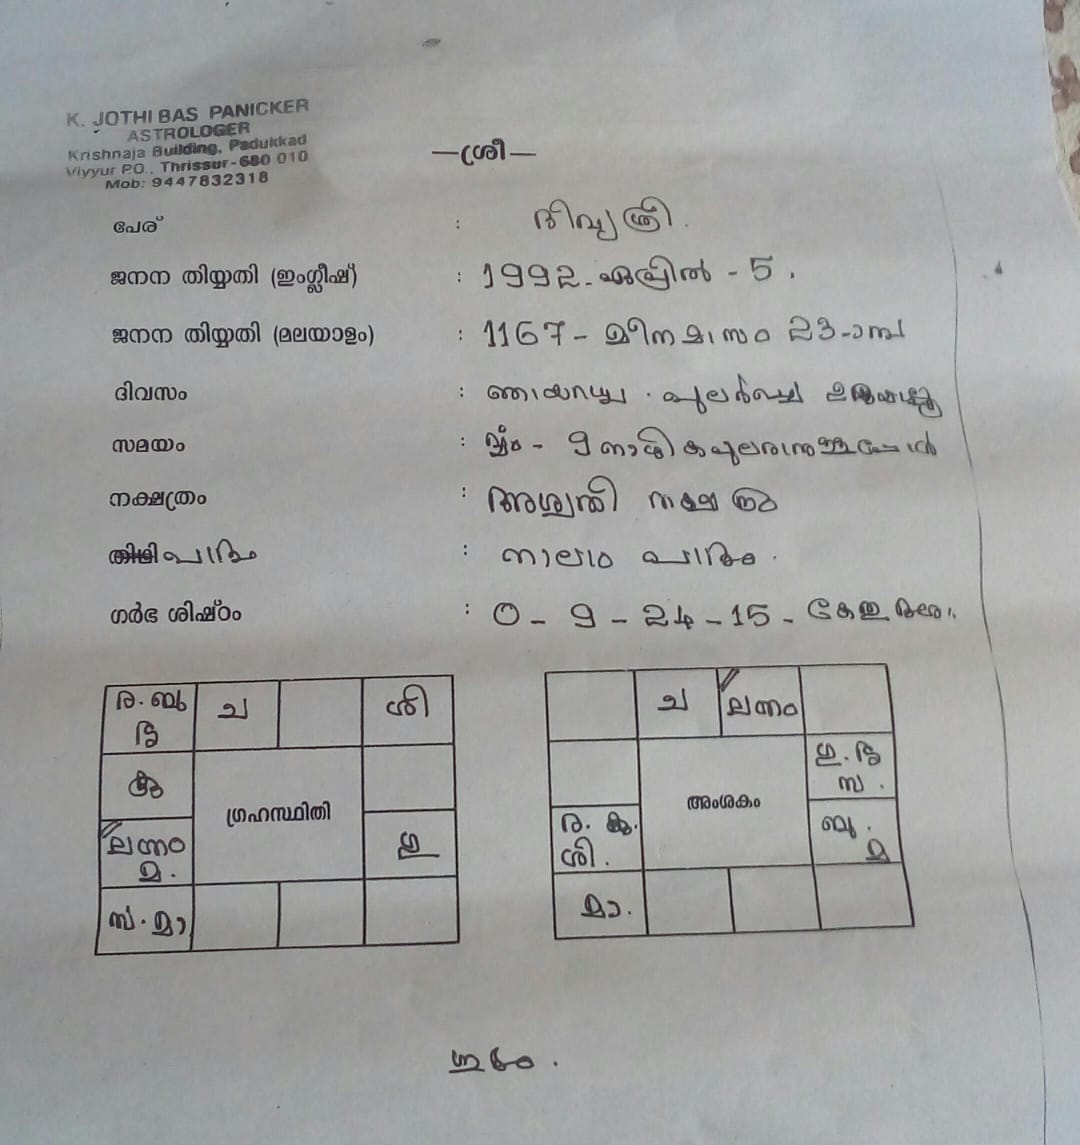 K. JOTHI BAS PANICKER
ASTROLOGER
Krishnaja Building, Padukkad
Viyyur P.O., Thrissur-680 010
Mob: 9447832318
—ശ്രീ—
പേര് : ദിവ്യശ്രീ.
ജനന തിയ്യതി (ഇംഗ്ലീഷ്) : 1992-ഏപ്രിൽ - 5.
ജനന തിയ്യതി (മലയാളം) : 1167 - മീനമാസം 23-ാമ്പ
ദിവസം : ഞായറാഴ്ച
സമയം :
നക്ഷത്രം : അശ്വതി നക്ഷത്രം
പാദം : നാലാം പാദം.
ഗർഭ ശിഷ്ഠം : 0 - 9 - 24 - 15 -
ര. ബു ച ശി
ശു
ഗ്രഹസ്ഥിതി
ലഗ്നം
മ. ഗു
സ. മാ
ച ലഗ്നം
ഗു. ശു
സ.
അംശകം
ര. കു.
ശി.
ബു.
മ
മാ.
ശുഭം.